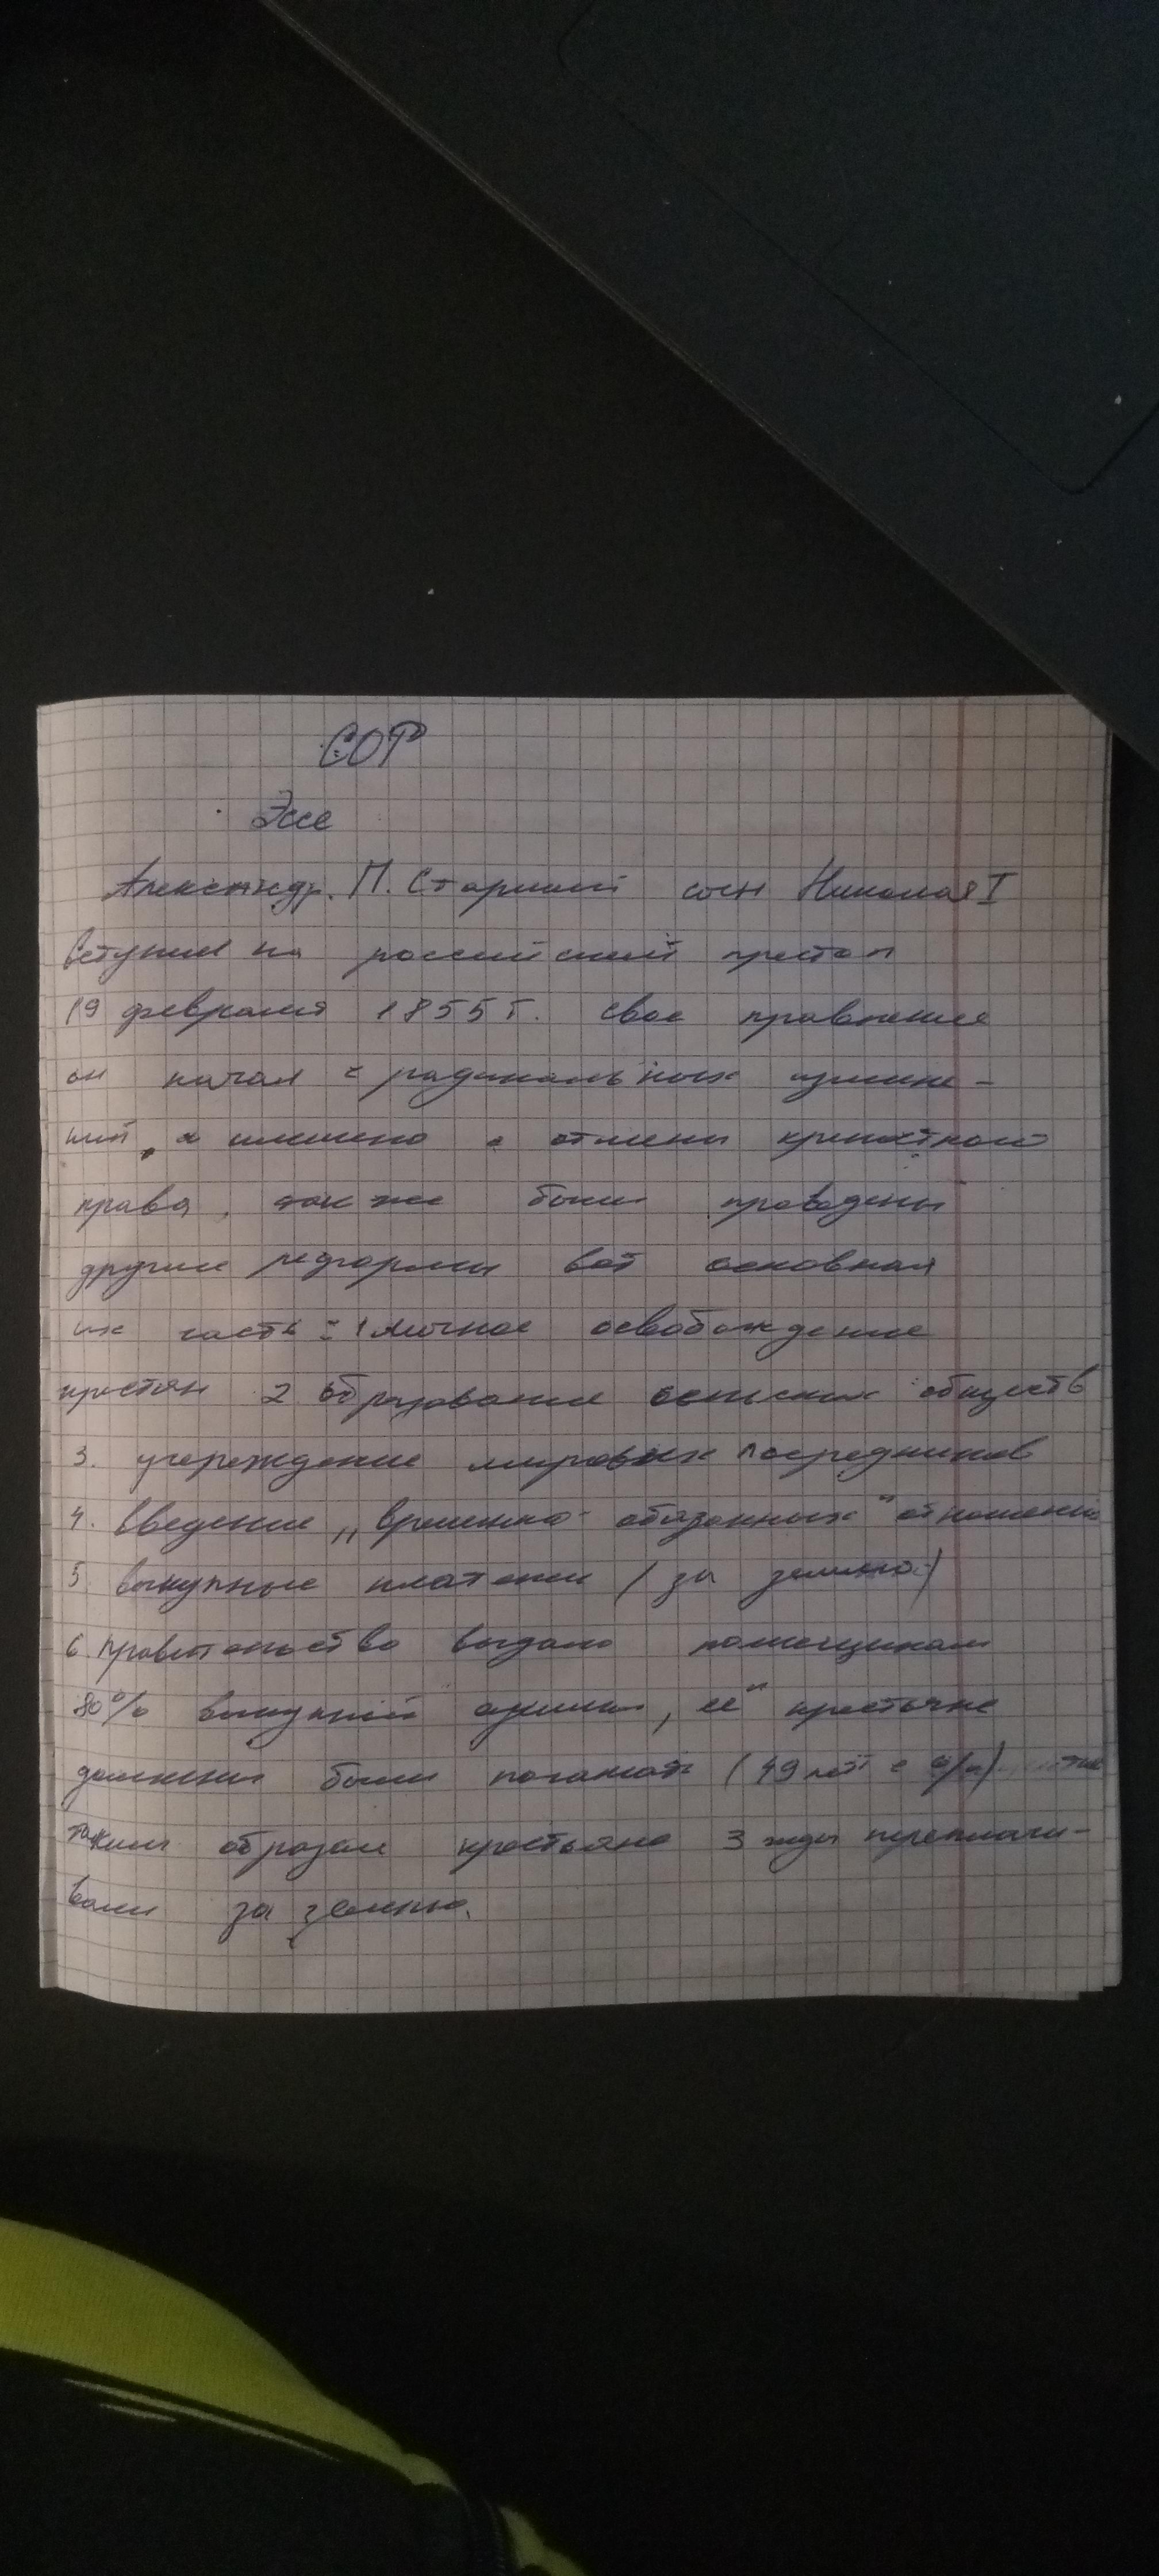 СОР
Эссе
Александр. П. Старший сын Николая I
вступил на российский престол
19 февраля 1855 г. свое правление
он начал с радикальных измине-
ний, а именно с отмены крепостного
права, так же были проведены
другие реформы вот основная
их часть: 1 личное освобождение
крестян 2. образование сельских обществ
3. учереждение мировых посредников
4. Введение „временно-обязанных" отношений
5 выкупные платежи (за землю)
6. правительство выдало помещикам
80% выкупной суммы, её крестьяне
должны были погашать (49 лет с %)
таким образом крестьяне 3 жды переплачи-
вали за землю.